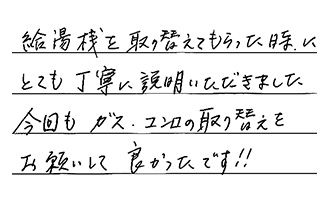 給湯桟を取り替えてもらった時に
とても丁寧に説明いただきました
今回も ガス・コンロの取り替えを
お願いして 良かったです!!